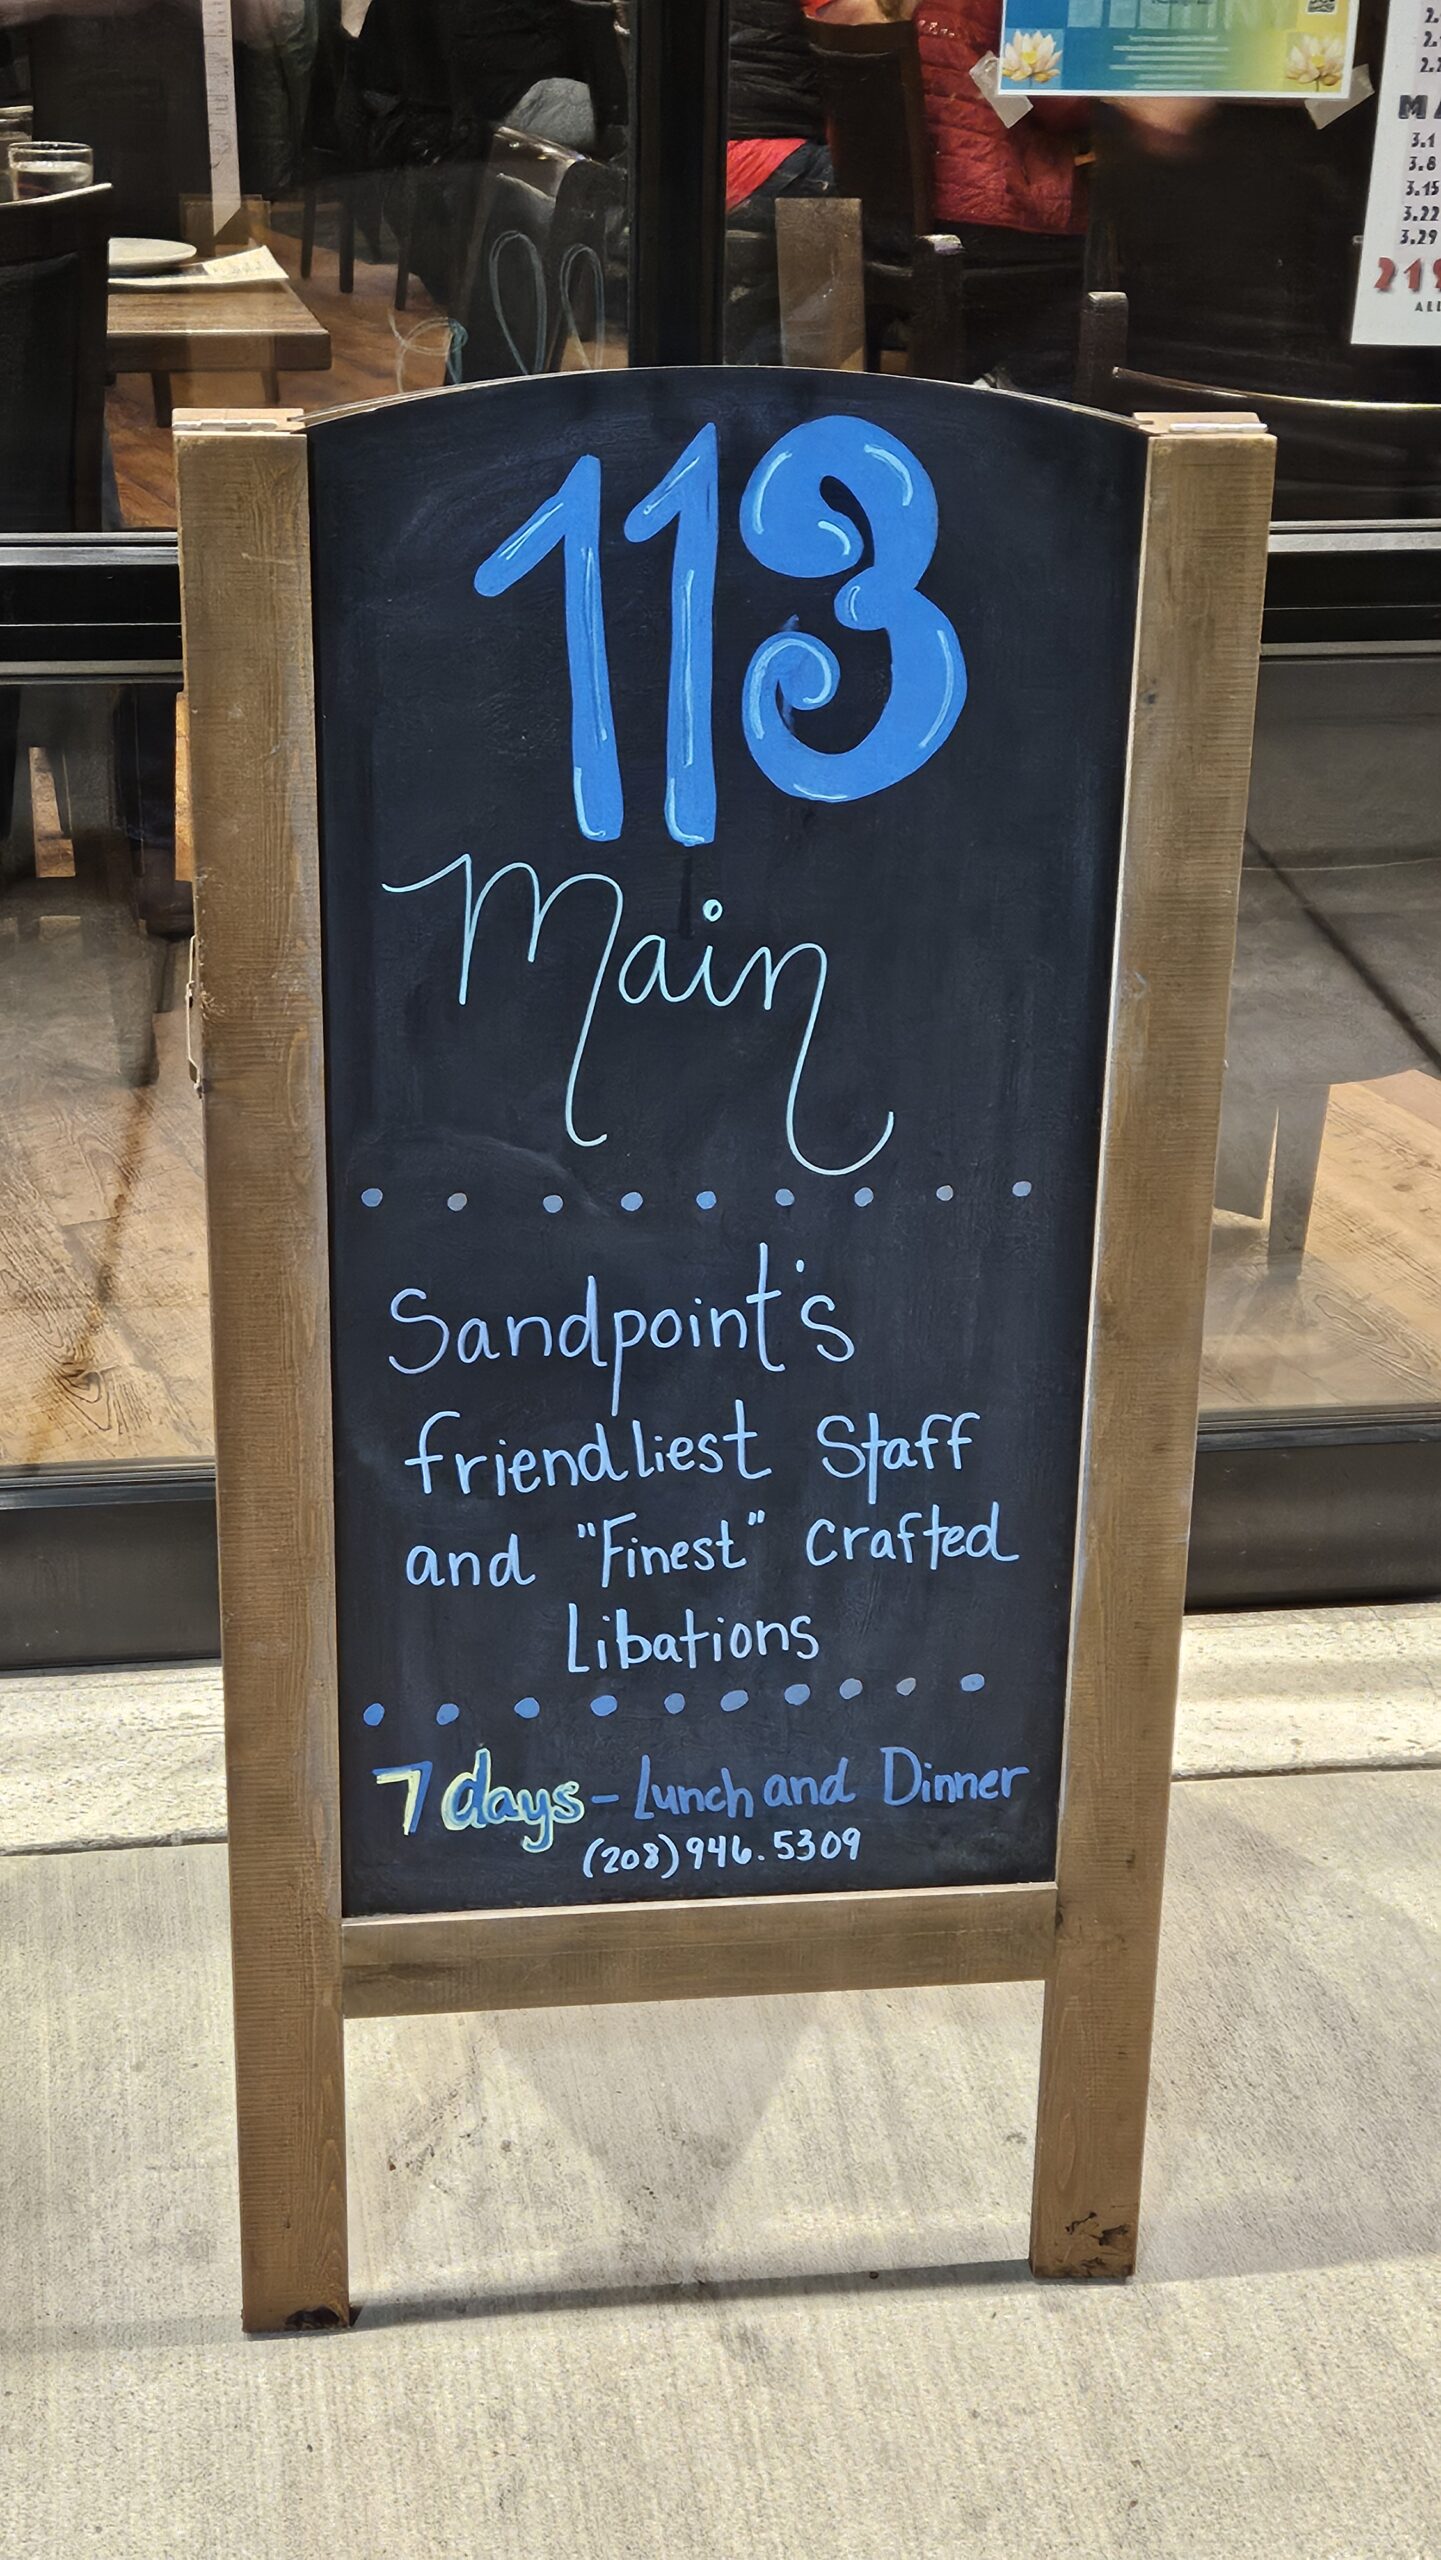 113
Main
Sandpoint's
friendliest Staff
and "Finest" Crafted
Libations
7 days - Lunch and Dinner
(208) 946.5309
3.1
3.8
3.15
3.22
3.29